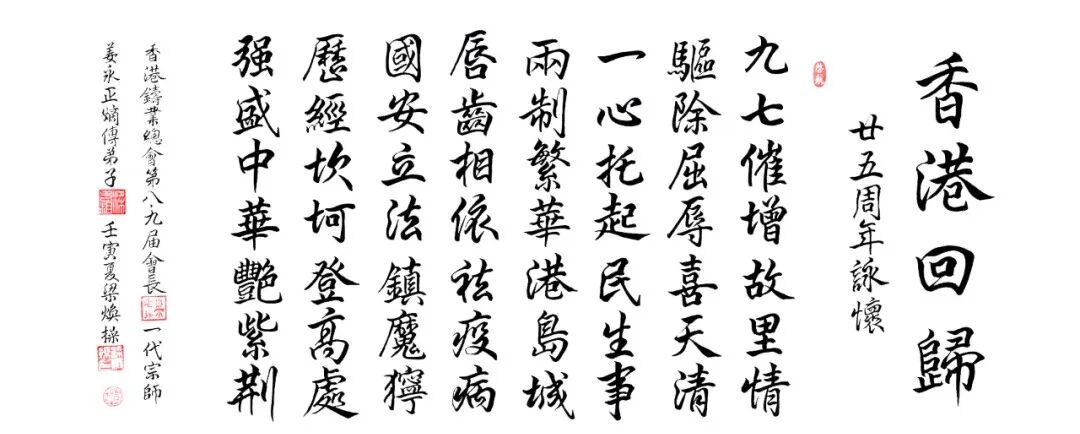 香港回歸
廿五周年詠懷
九七催增故里情
驅除屈辱喜天清
一心托起民生事
兩制繁華港島城
唇齒相依祛疫病
國安立法鎮魔獰
歷經坎坷登高處
强盛中華艷紫荆
香港鑄業總會第八、九届會長一代宗師
姜永正嫡傳弟子壬寅夏梁煥操